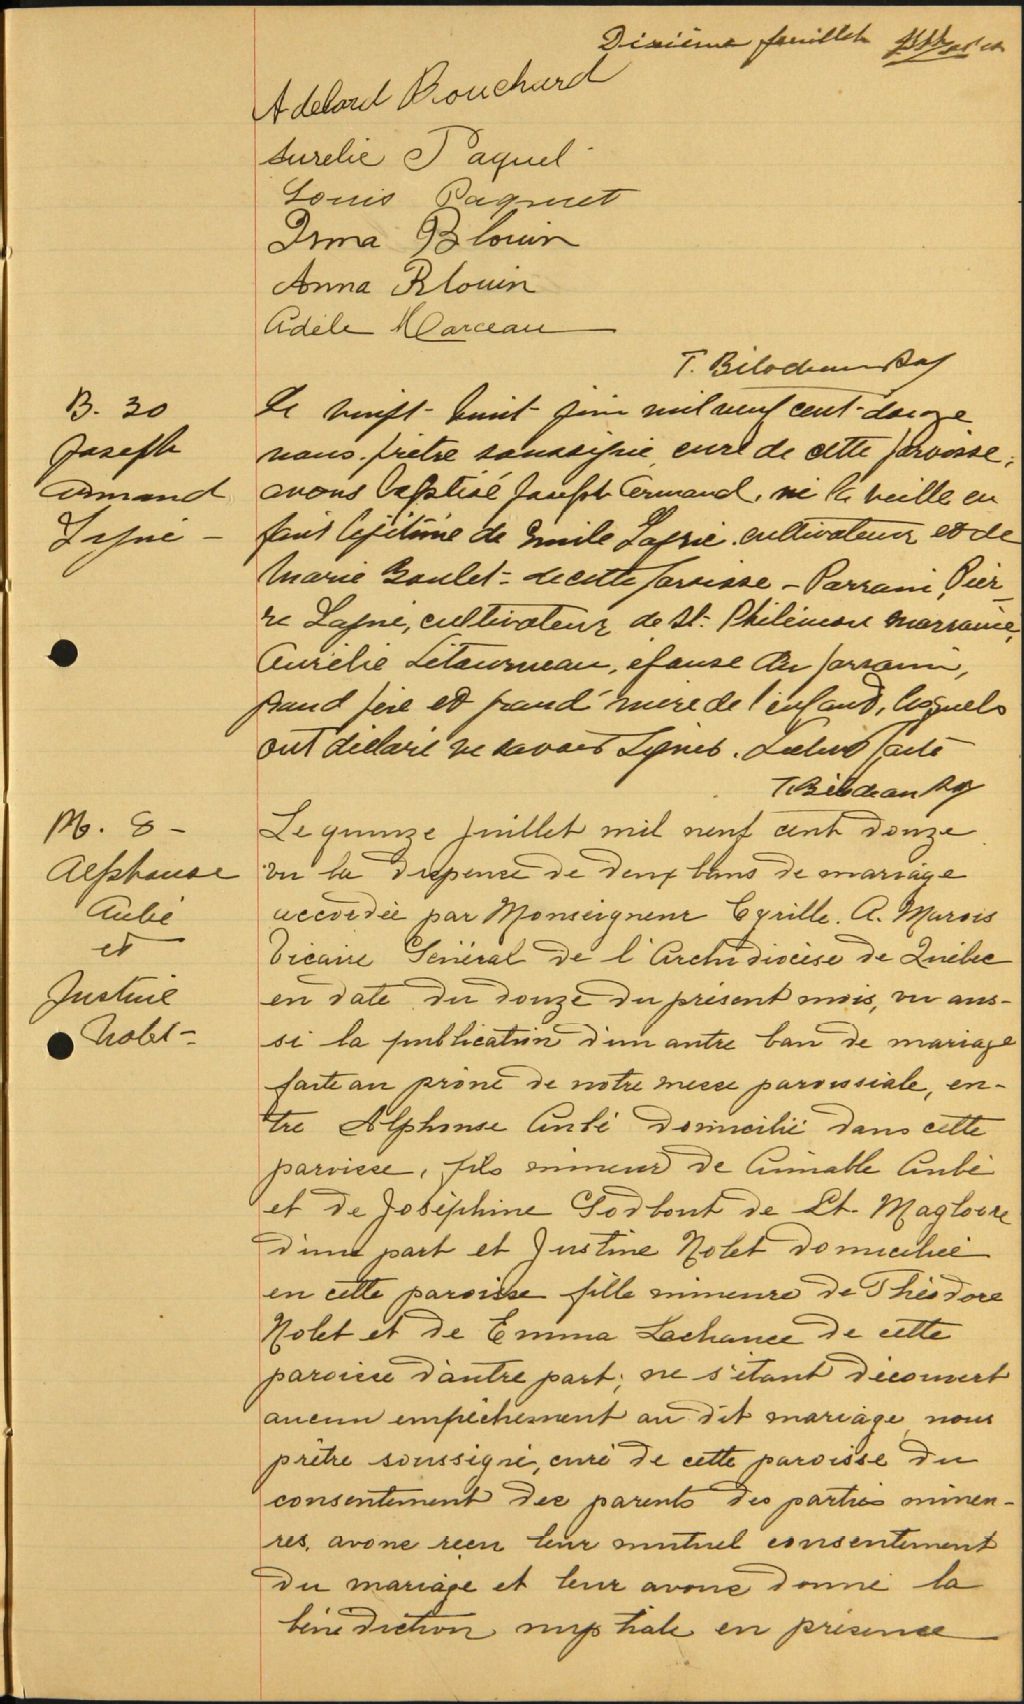 Dixième feuillet
Adelard Bouchard
Aurelie Paquet
Louis Paquet
Irma Blouin
Anna Blouin
Adèle Marceau
T. Bilodeau Ptr
B. 30
Joseph
Armand
Lapié -
Le vingt-huit juin mil neuf cent-douze
nous prêtre soussigné curé de cette paroisse,
avons baptisé Joseph Armand, né la veille en
fils légitime de Emile cultivateur et de
Marie Boulet - de cette paroisse - Parrain, Pier-
re cultivateur de St. Philémon marraine,
Aurélie Létourneau, épouse du parrain,
grand père et grand'mère de l'enfant, lesquels
ont déclaré ne savoir signer. Lecture faite
T. Bilodeau Ptr
M. 8 -
Alphonse
Aubé
et
Justine
Nolet -
Le quinze juillet mil neuf cent douze
vu la dispense de deux bans de mariage
accordée par Monseigneur Cyrille. A. Marois
Vicaire Général de l'Archidiocèse de Québec
en date du douze du présent mois, vu aus-
si la publication d'un autre ban de mariage
faite au prône de notre messe paroissiale, en-
tre Alphonse Aubé domicilié dans cette
paroisse, fils mineur de Aimable Aubé
et de Joséphine Godbout de St. Magloire
d'une part et Justine Nolet domiciliée
en cette paroisse fille mineure de Théodore
Nolet et de Emma Lachance de cette
paroisse d'autre part; ne s'étant découvert
aucun empêchement au dit mariage nous
prêtre soussigné, curé de cette paroisse du
consentement des parents des parties mineu-
res, avons reçu leur mutuel consentement
du mariage et leur avons donné la
bénédiction nuptiale en présence